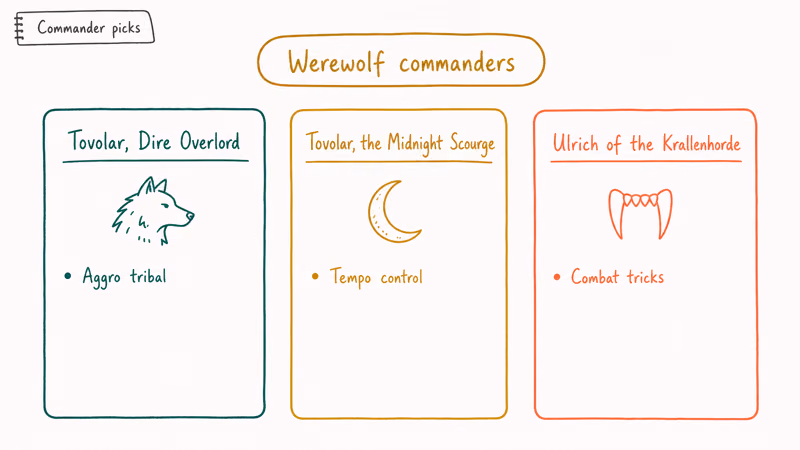 Commander picks
Werewolf commanders
Tovolar, Dire Overlord
• Aggro tribal
Tovolar, the Midnight Scourge
• Tempo control
Ulrich of the Krallenhorde
• Combat tricks